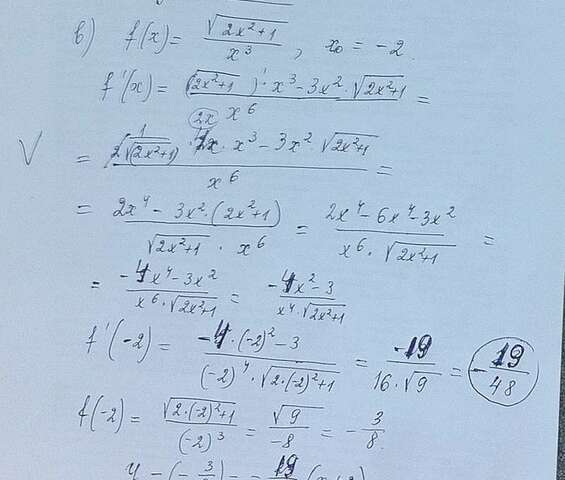 b) f(x) = √(2x²+1) / x³ , x₀ = -2
f'(x) = ((√(2x²+1))' x³ - 3x² · √(2x²+1)) / x⁶ =
= (1 / (2√(2x²+1)) · 4x · x³ - 3x² · √(2x²+1)) / x⁶ =
= (2x⁴ - 3x² · (2x²+1)) / (√(2x²+1) · x⁶) = (2x⁴ - 6x⁴ - 3x²) / (x⁶ · √(2x²+1)) =
= (-4x⁴ - 3x²) / (x⁶ · √(2x²+1)) = (-4x² - 3) / (x⁴ √(2x²+1))
f'(-2) = (-4 · (-2)² - 3) / ((-2)⁴ · √(2·(-2)²+1)) = -19 / (16 · √9) = -19/48
f(-2) = √(2·(-2)²+1) / (-2)³ = √9 / -8 = -3/8
y - (-3/8) = -19